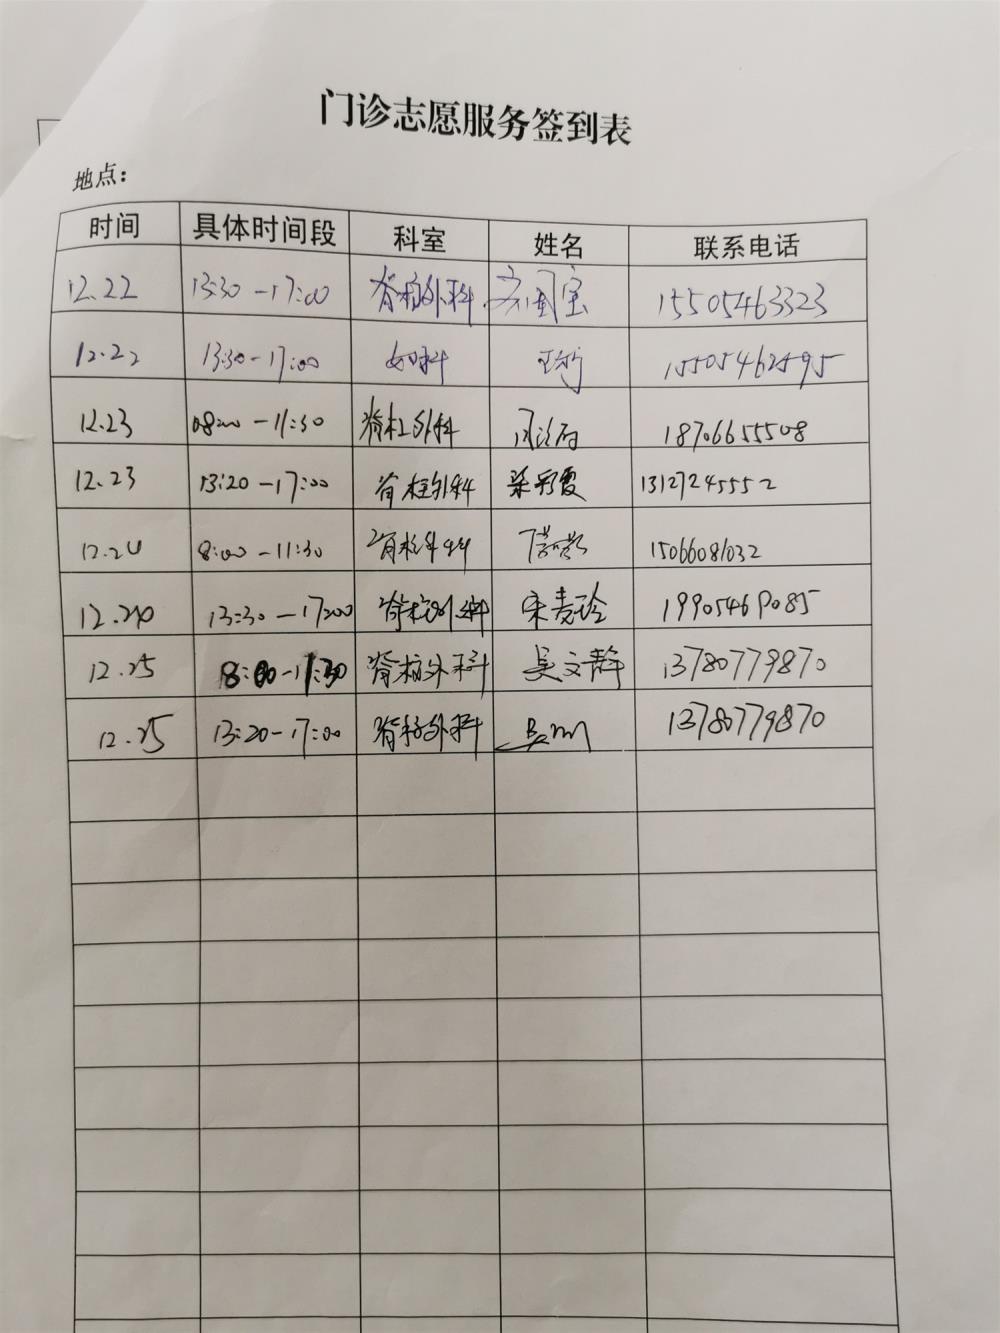 门诊志愿服务签到表
地点：
时间 具体时间段 科室 姓名 联系电话
12.22 13:30-17:00 脊柱外科 齐国宝 15505463323
12.22 13:30-17:00 妇科 15505462595
12.23 08:00-11:30 脊柱外科 18706655508
12.23 13:20-17:00 脊柱外科 梁彩霞 13127245552
12.24 8:00-11:30 脊柱外科 15066081032
12.24 13:30-17:00 脊柱外科 宋麦玲 19905469085
12.25 8:00-11:30 脊柱外科 吴文静 13780779870
12.25 13:20-17:00 脊柱外科 13780779870